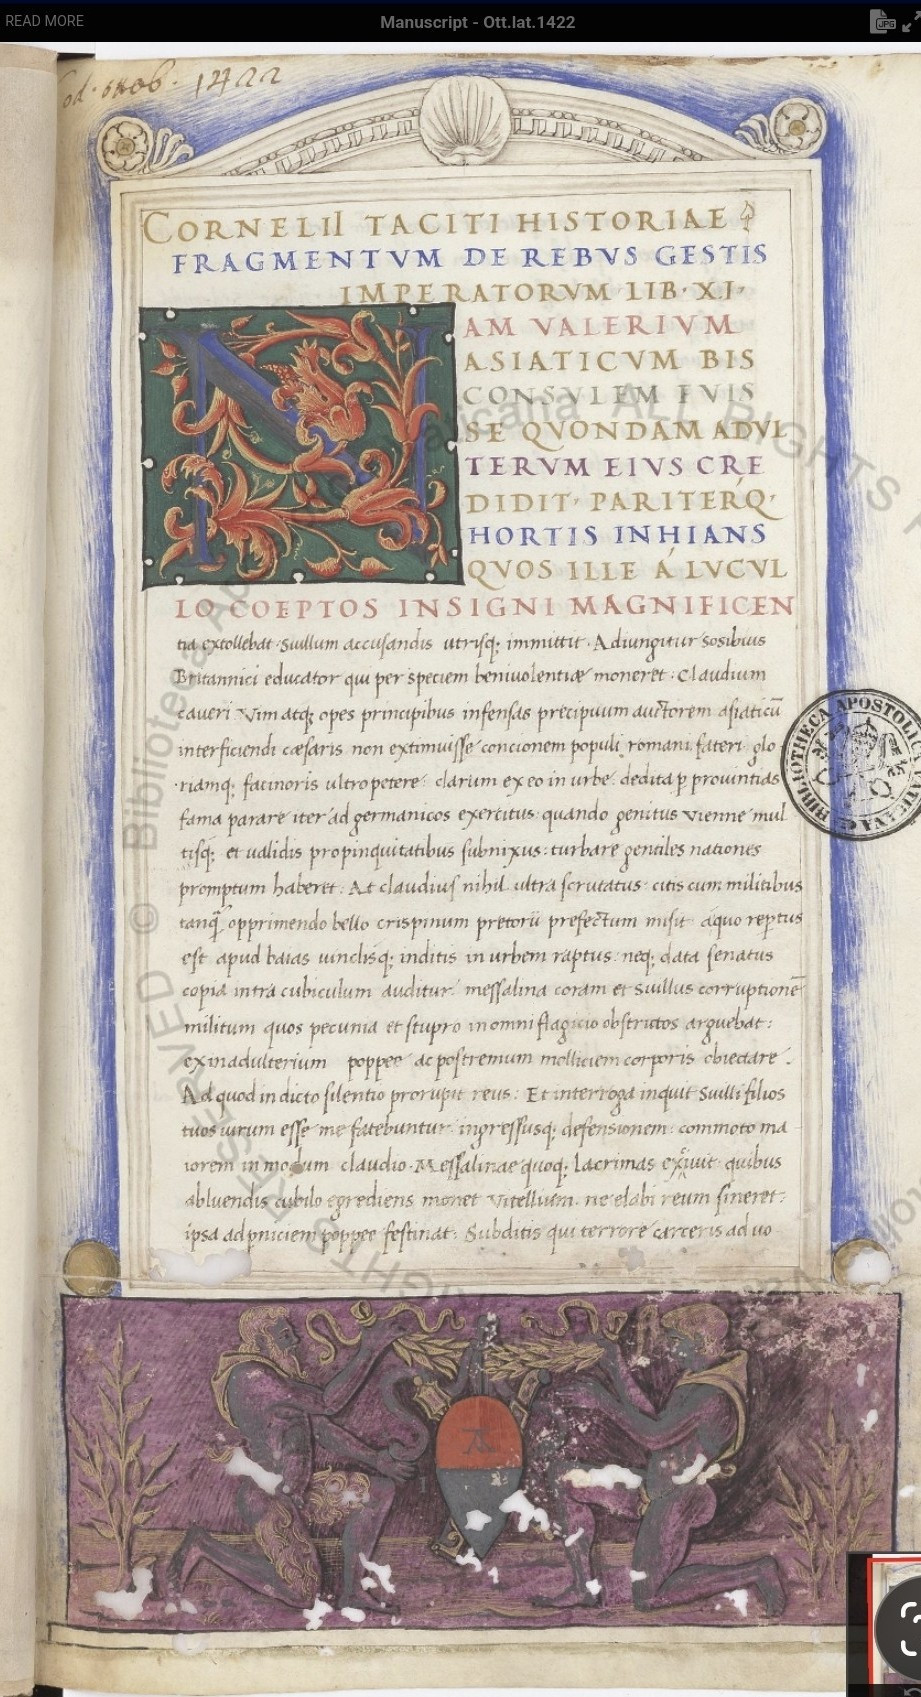 READ MORE
Manuscript - Ott.lat.1422
JPG
1422
CORNELII TACITI HISTORIAE
FRAGMENTVM DE REBVS GESTIS
IMPERATORVM LIB· XI·
N
AM VALERIVM
ASIATICVM BIS
CONSVLEM FVIS
SE QVONDAM ADVL
TERVM EIVS CRE
DIDIT· PARITERQ·
HORTIS INHIANS
QVOS ILLE Á LVCVL
LO COEPTOS INSIGNI MAGNIFICEN
tia extollebat· Suillum accusandis utrisq; immittit· Adiungitur Sosibius
Britannici educator qui per speciem beniuolentiæ moneret· Claudium
caueri· Vim atq; opes principibus infensas precipuum auctorem asiaticū
interficiendi cæsaris non extimuisse concionem populi romani fateri· glo
riamq; facinoris ultro petere· clarum ex eo in urbe· dedita ꝑ prouintias
fama parare iter ad germanicos exercitus· quando genitus Vienne mul
tisq; et ualidis propinquitatibus subnixus: turbare gentiles nationes
promptum haberet: At claudius nihil ultra scrutatus· citis cum militibus
tanq̄ opprimendo bello crispinum pretorii prefectum misit· á quo reptus
est apud baias uinclisq; inditis in urbem raptus: neq; data senatus
copia intra cubiculum auditur· messalina coram et Suillus corruptionē
militum quos pecunia et stupro in omni flagicio obstrictos arguebat:
exin adulterium poppee ac postremum molliciem corporis obiectare·
Ad quod in dicto silentio prorupit reus: Et interroga inquit Suilli filios
tuos uirum esse me fatebuntur· ingressusq; defensionem· commoto ma
iorem in modum claudio· Messalinae quoq; lacrimas exciuit· quibus
abluendis cubilo egrediens monet Vitellium· ne elabi reum sineret:
ipsa ad pniciem poppee festinat· Subditis qui terrore carceris ad uo
BIBLIOTHECA APOSTOLICA VATICANA
© Biblioteca Apostolica Vaticana ALL RIGHTS RESERVED